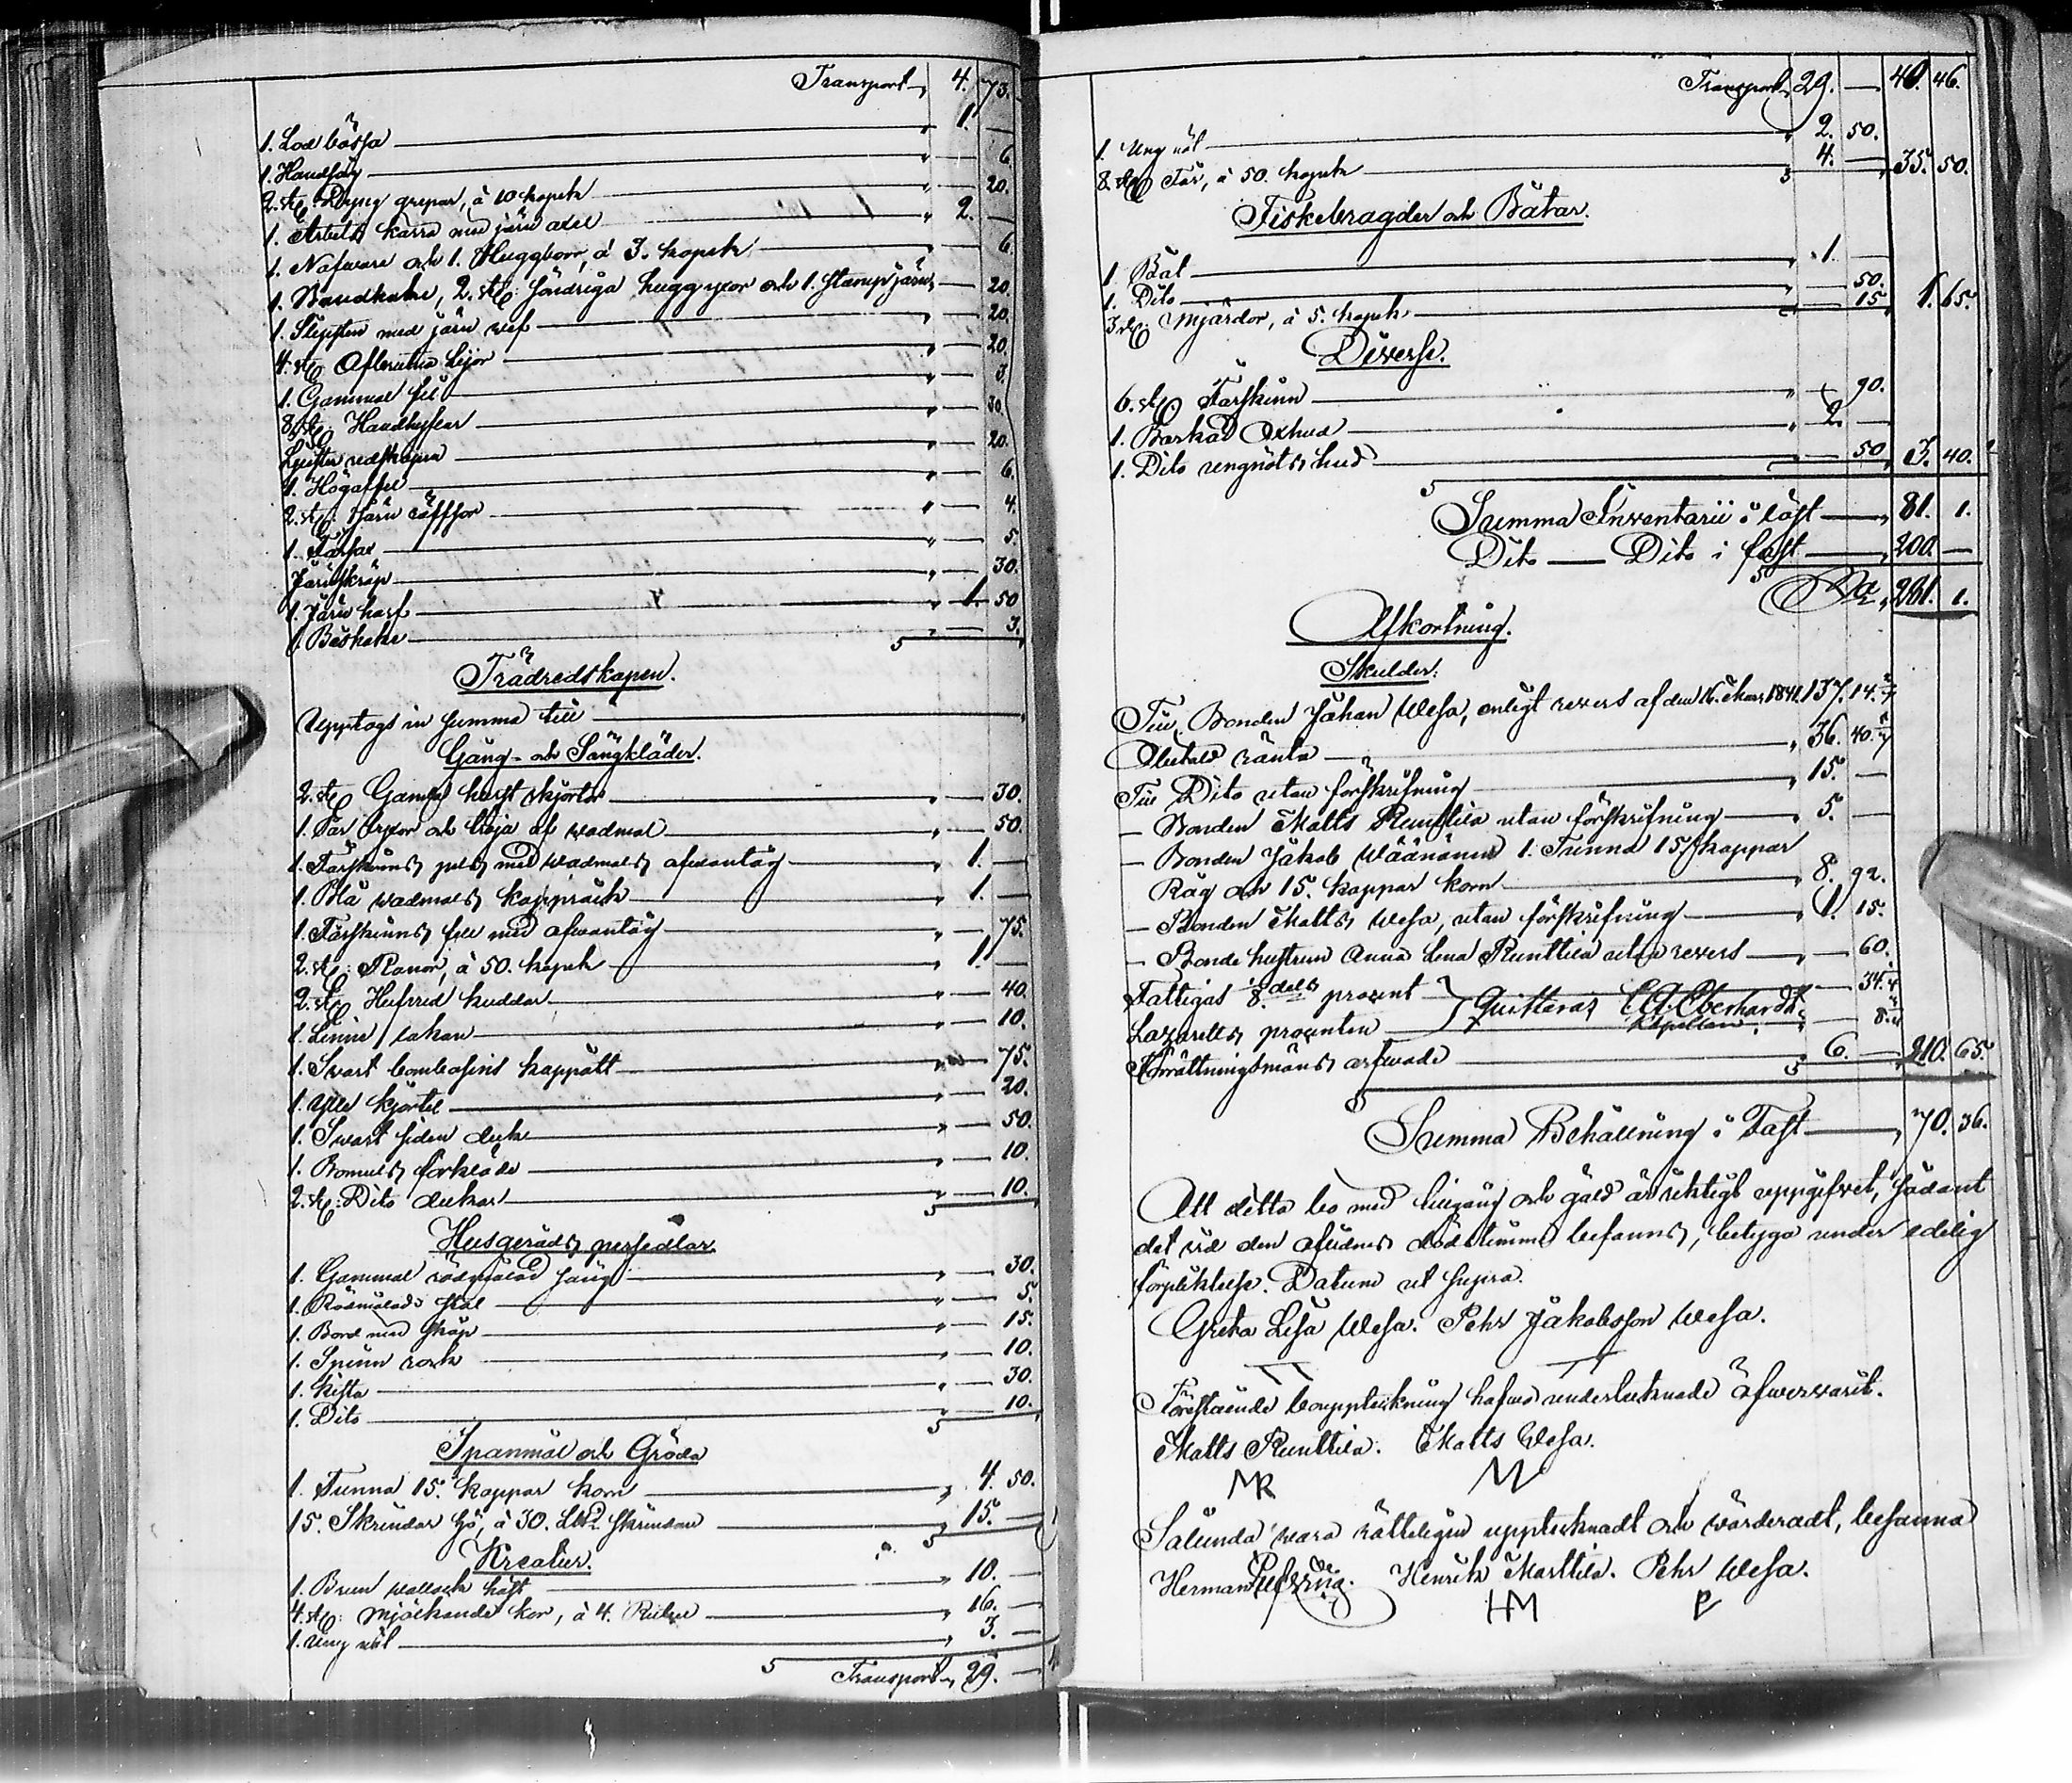 Transport 4. 73.
1. Lod bössa 1. —
1. Handsåg — 6.
2. st: Dyng grepar, à 10 kopek — 20.
1. Arbets kärra med järn axel 2. —
1. Nafware och 1. Huggborr, à 3. kopek — 6.
1. Bandknif, 2. st: söndriga hugg yxor och 1. stampjärn — 20.
1. Slipsten med järn wef — 20.
4. st: Aflerutna Lijor — 20.
1. Gammal fil — 3.
8. st: Handhyflar — 30.
Ljuster redskapen — 20.
1. Högaffel — 6.
2. st: Järn räfflor — 4.
1. Fårsax — 5.
Järnskrap — 30.
1. Järn harf 1. 50
1. Beskare — 3.
Trädredskapen.
Upptogs in summa till
Gång- och Sängkläder.
2. st: Gamla skjortor — 30.
1. Par byxor och tröja af wadmal — 50.
1. Fårskinns pels med wadmals öfwantåg 1. —
1. Blå wadmals kappråck 1. —
1. Fårskinns fäll med öfwantåg — 75.
2. st: Ranor, à 50. kopek 1. —
2. st: Hufvud kuddar — 40.
1. Linne lakan — 10.
1. Svart bombasins kappått — 75.
1. Ylle kjortel — 20.
1. Svart siden duk — 50.
1. Bomulls förkläde — 10.
2. st: Dito dukar — 10.
Husgeråds persedlar.
1. Gammal rödmålad säng — 30.
1. Rödmålad stol — 5.
1. Bord med skåp — 15.
1. Spinn rock — 10.
1. Kista — 30.
1. Dito — 10.
Spanmål och Gröda
1. Tunna 15. kappar korn 4. 50.
15. Skrindor hö, à 30. skrindan 15. —
Kreatur.
1. Brun wallack häst 10. —
4. st: Mjölkande kor, à 4. Rubel 16. —
1. Ung nöt 3. —
Transport 29. —
Transport 29. — 40. 46.
1. Ung nöt 2. 50.
8. st: Får, à 50. kopek 4. — 35. 50.
Fiskebragder och Båtar.
1. Båt 1. —
1. Dito — 50.
3 st: Mjärdor, à 5. kopek — 15 1. 65.
Diverse.
6. st: Fårskinn — 90.
1. Barkad Oxhud 2. —
1. Dito ungnöts hud — 50 3. 40.
Summa Inventarii i löst 81. 1.
Dito — Dito i fast 200. —
S:a 281. 1.
Afkortning.
Skulder:
Till Bonden Johan Wesa, enligt revers af den 16. Mars 1841 137. 14. 2/7
Obetald ränta 36. 40.
Till Dito utan förskrifning 15. —
— Bonden Matts Runttila utan förskrifning 5. —
— Bonden Jakob Wäänänen 1. Tunna 15 kappar
Råg och 15. kappar korn 8. 92.
— Bonden Matts Wesa, utan förskrifning 1. 15.
— Bonde hustrun Anna Lena Runttila utan revers — 60.
Fattigas 8.dels procent — 34.
Lazaretts procenten — 8.
Quitteras C. A. Eberhardt. Kapellan.
Förrättningsmäns arfwode 6. — 210. 65.
Summa Behållning i Fast 70. 36.
Att detta bo med tillgång och gäld är riktigt uppgifwet, sådant
det vid den aflidnes dödstimma befanns, betyga under edelig
förpliktelse. Datum ut supra.
Greta Lisa Wesa. Pehr Jakobsson Wesa.
Föreståendе bouppteckning hafwa undertecknade öfwerwarit.
Matts Runttila. Matts Wesa.
MR M
Sålunda wara rätteligen upptecknadt och wärderadt, besanna
Herman Henrik Marttila. Pehr Wesa.
HM P